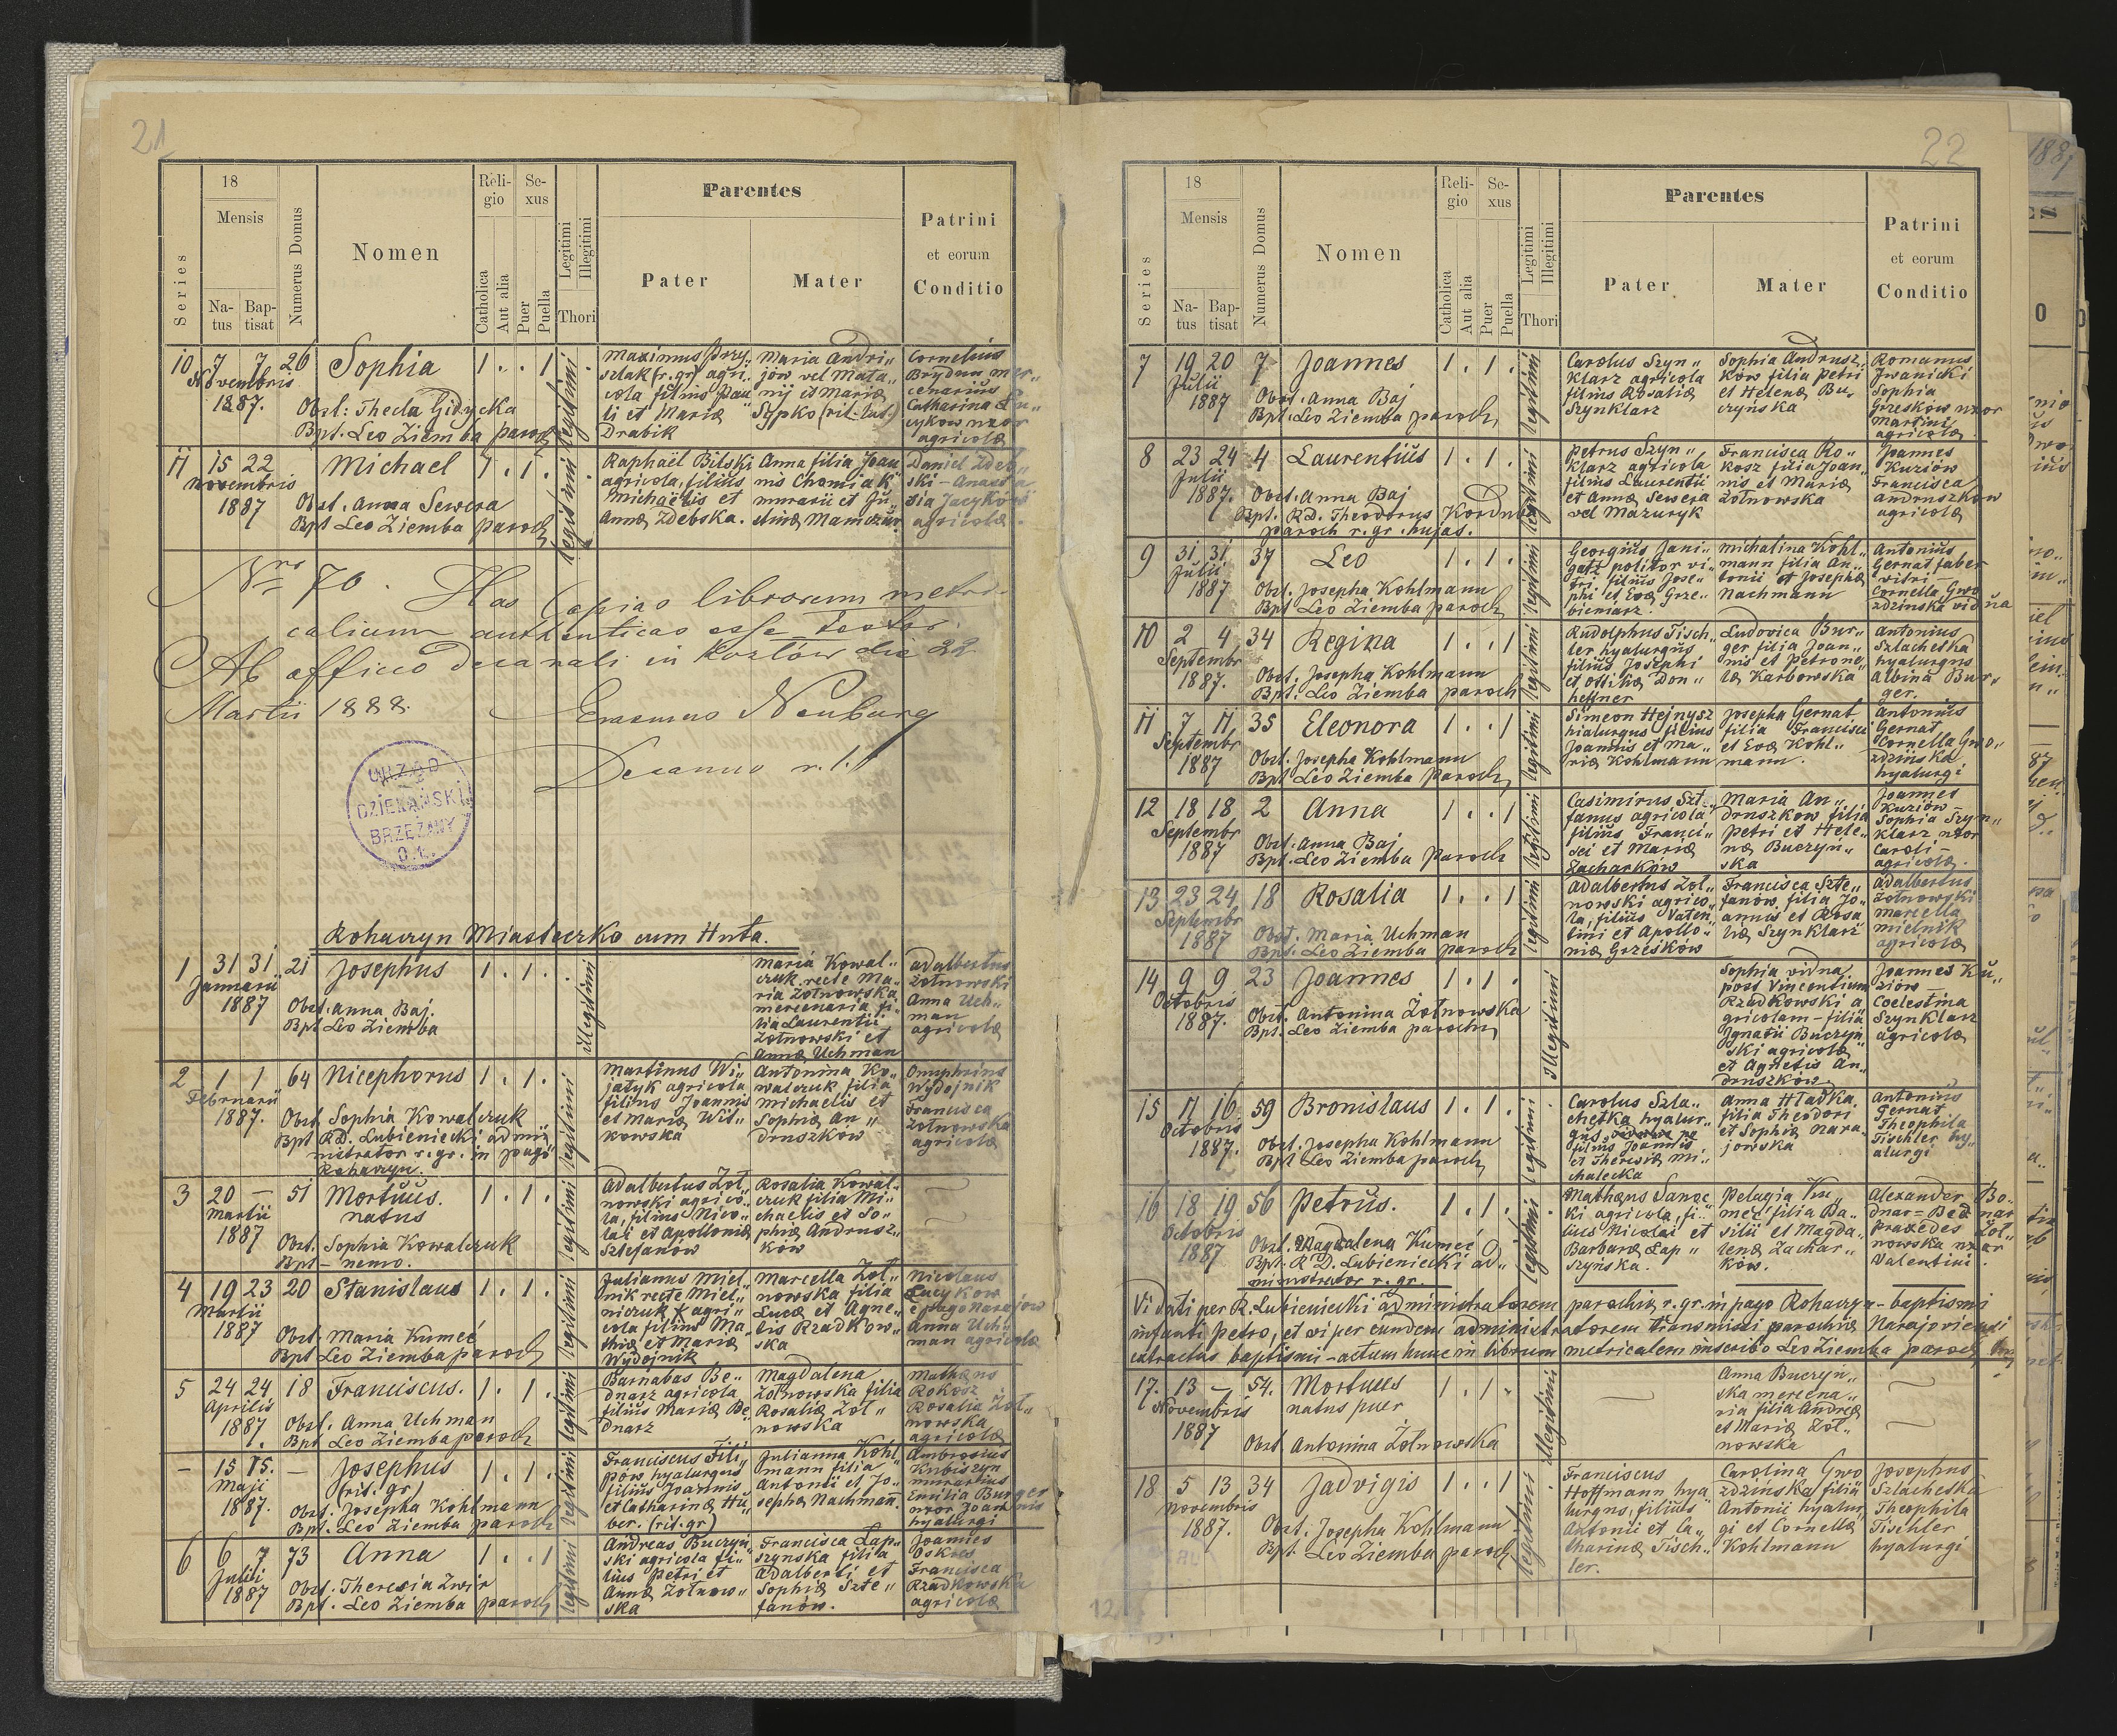 21
18
Mensis
Series
Na-
tus
Bap-
tisat
Numerus Domus
Nomen
Reli-
gio
Catholica
Aut alia
Se-
xus
Puer
Puella
Legitimi
Illegitimi
Thori
Parentes
Pater
Mater
Patrini
et eorum
Conditio
10 7 7 26 Sophia 1 . . 1
Novembris
1887.
Obst: Thecla Gidycka
Bpt. Leo Ziemba paroch
legitimi
Maximus Przy„
szlak (r. gr) agri„
cola filius Pau„
li et Mariæ
Drabik
Maria Andri„
jów vel Mata„
nij et Mariæ
Sypko (rit. lat.)
Cornelius
Brydun mer„
cenarius
Catharina Łu„
cykow uxor
agricolæ
11 15 22 Michael 1 . 1 .
Novembris
1887
Obst. Anna Sewera
Bpt Leo Ziemba paroch
legitimi
Raphaël Bilski
agricola, filius
Michaëlis et
Annæ Zdebska.
Anna filia Joan„
nis Chomiak
murarii et Ju„
stinæ Mamczur.
Daniel Zdeb„
ski - Anasta
sia Jacyków
agricolæ.
Nro 70. Has Copias librorum metri-
calium authenticas esse testor.
Ab officio decanali in Kozłów die 22
Martii 1888.
Erasmus Neuburg
Decanus r. l.
URZĄD
DZIEKAŃSKI
BRZEŻANY
O. ł.
Rohaczyn Miasteczko cum Huta.
1 31 31 21 Josephus 1 . 1 .
Januarii
1887
Obst. Anna Baj.
Bpt Leo Ziemba
illegitimi
Maria Kowal„
czuk recte Ma„
ria Żolnowska
mercenaria fi„
lia Laurentii
Żolnowski et
Annæ Uchman
Adalbertus
Żolnowski
Anna Uch„
man
agricolæ
2 1 1 64 Nicephorus 1 . 1 .
Februarii
1887.
Obst Sophia Kowalczuk
Bpt RD. Lubieniecki admi„
nistrator r. gr. in pago
Rohaczyn.
legitimi
Martinus Wi„
jatyk agricola
filius Joannis
et Mariæ Wit„
kowska
Antonina Ko„
walczuk filia
Michaelis et
Sophiæ An„
druszków
Onuphrius
Wydojnik
Francisca
Żolnowska
agricolæ
3 20 — 51 Mortuus. 1 . 1 .
natus
Martii
1887
Obst. Sophia Kowalczuk
Bpt - nemo.
legitimi
Adalbertus Żol„
nowski agrico„
la, filius Nico„
lai et Apolloniæ
Sztefanów
Rosalia Kowal„
czuk filia Mi„
chaelis et So„
phiæ Andrusz„
ków
4 19 23 20 Stanislaus 1 . 1 .
Martii
1887
Obst. Maria Kumeć
Bpt Leo Ziemba paroch
legitimi
Julianus Miel„
nik recte Miel„
niczuk agri„
cola filius Ma„
thiæ et Mariæ
Wydojnik
Marcella Żol„
nowska filia
Lucæ et Agne„
tis Rzadkow„
ska
Nicolaus
Łucyków
e pago Narajow
Anna Uch„
man agricolæ
5 24 24 18 Franciscus. 1 . 1 .
Aprilis
1887
Obst. Anna Uchman
Bpt Leo Ziemba paroch
legitimi
Barnabas Be„
dnarz agricola
filius Mariæ Be„
dnarz
Magdalena
Żolnowska filia
Rosaliæ Żol„
nowska
Mathæus
Rokosz
Rosalia Żol„
nowska
agricolæ
— 15 15. — Josephus 1 . 1 .
(rit. gr)
Maji
1887.
Obst. Josepha Kohlmann
Bpt. Leo Ziemba paroch
legitimi
Franciscus Fili„
pow hyalurgus
filius Joannis
et Catharinæ Hu„
ber. (rit. gr)
Julianna Kohl„
mann filia
Antonii et Jo„
sephæ Nachmann.
Ambrosius
Kubiszyn
murarius
Emilia Burger
uxor Joannis
hyalurgi
6 6 7 73 Anna 1 . . 1
Julii
1887
Obst. Theresia Zwir
Bpt. Leo Ziemba paroch
legitimi
Andreas Buczyń„
ski agricola fi„
lius Petri et
Annæ Żolnow„
ska
Francisca Łap„
szynska filia
Adalberti et
Sophiæ Szte„
fanów.
Joannes
Francisca
Rzadkowska
agricolæ
22
18
Mensis
Series
Na-
tus
Bap-
tisat
Numerus Domus
Nomen
Reli-
gio
Catholica
Aut alia
Se-
xus
Puer
Puella
Legitimi
Illegitimi
Thori
Parentes
Pater
Mater
Patrini
et eorum
Conditio
7 19 20 7 Joannes 1 . 1 .
Julii
1887
Obst. Anna Baj
Bpt. Leo Ziemba paroch
legitimi
Carolus Szyn„
klarz agricola
filius Rosaliæ
Szynklarz
Sophia Andrusz„
ków filia Petri
et Helenæ Bu„
czyńska
Romanus
Iwanicki
Sophia
Grzesków uxor
Martini
agricolæ
8 23 24 4 Laurentius 1 . 1 .
Julii
1887.
Obst. Anna Baj
Bpt. RD. Theodorus Kordub
paroch r. gr. hujas.
legitimi
Petrus Szyn„
klarz agricola
filius Laurentii
et Annæ Sewera
vel Mazuryk
Francisca Ro„
kosz filia Joan„
nis et Mariæ
Żolnowska
Joannes
Kuziów
Francisca
Andruszkow
agricolæ
9 31 31 37 Leo 1 . 1 .
Julii
1887
Obst. Josepha Kohlmann
Bpt Leo Ziemba paroch
legitimi
Georgius Jani„
gatz politor vi„
tri filius Jose„
phi et Evæ Grze„
bieniarz.
Michalina Kohl„
mann filia An„
tonii et Josephæ
Nachmann
Antonius
Gernat faber
vitri -
Cornelia Gwo
zdzinska vidua
10 2 4 34 Regina 1 . . 1
Septembr
1887.
Obst. Josepha Kohlmann
Bpt. Leo Ziemba paroch
legitimi
Rudolphus Tisch„
ler hyalurgus
filius Josephi
et Ottiliæ Don„
heffner
Ludovica Bur„
ger filia Joan„
nis et Petrone„
læ Karbowska
Antonius
Szlacheska
hyalurgus
Albina Bur„
ger.
11 7 11 35 Eleonora 1 . . 1
Septembr
1887
Obst. Josepha Kohlmann
Bpt Leo Ziemba paroch
legitimi
Simeon Hejnysz
hialurgus filius
Joannis et Ma„
riæ Kohlmann
Josepha Gernat
filia Francisci
et Evæ Kohl„
mann.
Antonius
Gernat
Cornella Gwo„
zdzinska
hyalurgi
12 18 18 2 Anna 1 . . 1
Septembr
1887
Obst. Anna Baj
Bpt. Leo Ziemba paroch
legitimi
Casimirus Szt„
fanus agricola
filius Franci„
sci et Mariæ
Zacharków
Maria An„
druszkow filia
Petri et Hele„
næ Buczyn„
ska
Joannes
Kuziów -
Sophia Szyn„
klarz uxor
Caroli -
agricolæ.
13 23 24 18 Rosalia 1 . . 1
Septembr
1887
Obst. Maria Uchman
Bpt. Leo Ziemba paroch
legitimi
Adalbertus Żol„
nowski agrico„
la, filius Valen„
tini et Apollo„
niæ Grzesków
Francisca Szte„
fanów filia Jo„
annis et Rosa
liæ Szynklarz
Adalbertus
Żolnowski
Marcella
Mielnik
agricolæ
14 9 9 23 Joannes 1 . 1 .
Octobris
1887.
Obst. Antonina Żolnowska
Bpt. Leo Ziemba paroch
illegitimi
Sophia vidua
post Vincentium
Rzadkowski a
gricolam - filia
Ignatii Buczyń„
ski agricolæ
et Agnetis An„
druszkow
Joannes Ku„
ziów -
Coelestina
Szynklarz
agricolæ
15 11 16 59 Bronislaus 1 . 1 .
Octobris
1887.
Obst. Josepha Kohlmann
Bpt Leo Ziemba paroch
legitimi
Carolus Szla„
chetka hyalur„
gus
filius Joannis
et Theresiæ Mi„
chalecka
Anna Hładka
filia Theodori
et Sophiæ Nara„
jowska
Antonius
Gernat
Theophila
Tischler hy„
alurgi
16 18 19 56 Petrus. 1 . 1 .
Octobris
1887
Obst. Magdalena Kumeć
Bpt. R D. Lubieniecki ad„
ministrator r. gr.
legitimi
Mathæus Sanec
ki agricola, fi„
lius Nicolai et
Barbaræ Łap„
szynska.
Pelagia Ku„
meć filia Ba„
silii et Magda„
lenæ Zachar„
ków.
Alexander Bo„
dnar - Bednar
Praxedes Żol„
nowska uxor
Valentini.
Vi dati per R. Lubieniecki administratorem parochiæ r. gr. in pago Rohaczyn - baptismi
infanti Petro, et vi per eundem administratorem transmissi parochiæ Narajoviensi
extractus baptismi - actum hunc in librum metricalem inscribo Leo Ziemba paroch
17. 13 — 54. Mortuus 1 . 1 .
natus puer
Novembris
1887
Obst. Antonina Żolnowska
illegitimi
Anna Buczyń„
ska mercena„
ria filia Andreæ
et Mariæ Żol„
nowska
18 5 13 34 Jadvigis 1 . . 1
Novembris
1887.
Obst. Josepha Kohlmann
Bpt. Leo Ziemba paroch
legitimi
Franciscus
Hoffmann hya
lurgus, filius
Antonii et Ca„
tharinæ Tisch„
ler.
Carolina Gwo
zdzińska filia
Antonii hyalur„
gi et Cornellæ
Kohlmann
Josephus
Szlacheska
Theophila
Tischler
hyalurgi
12
1887